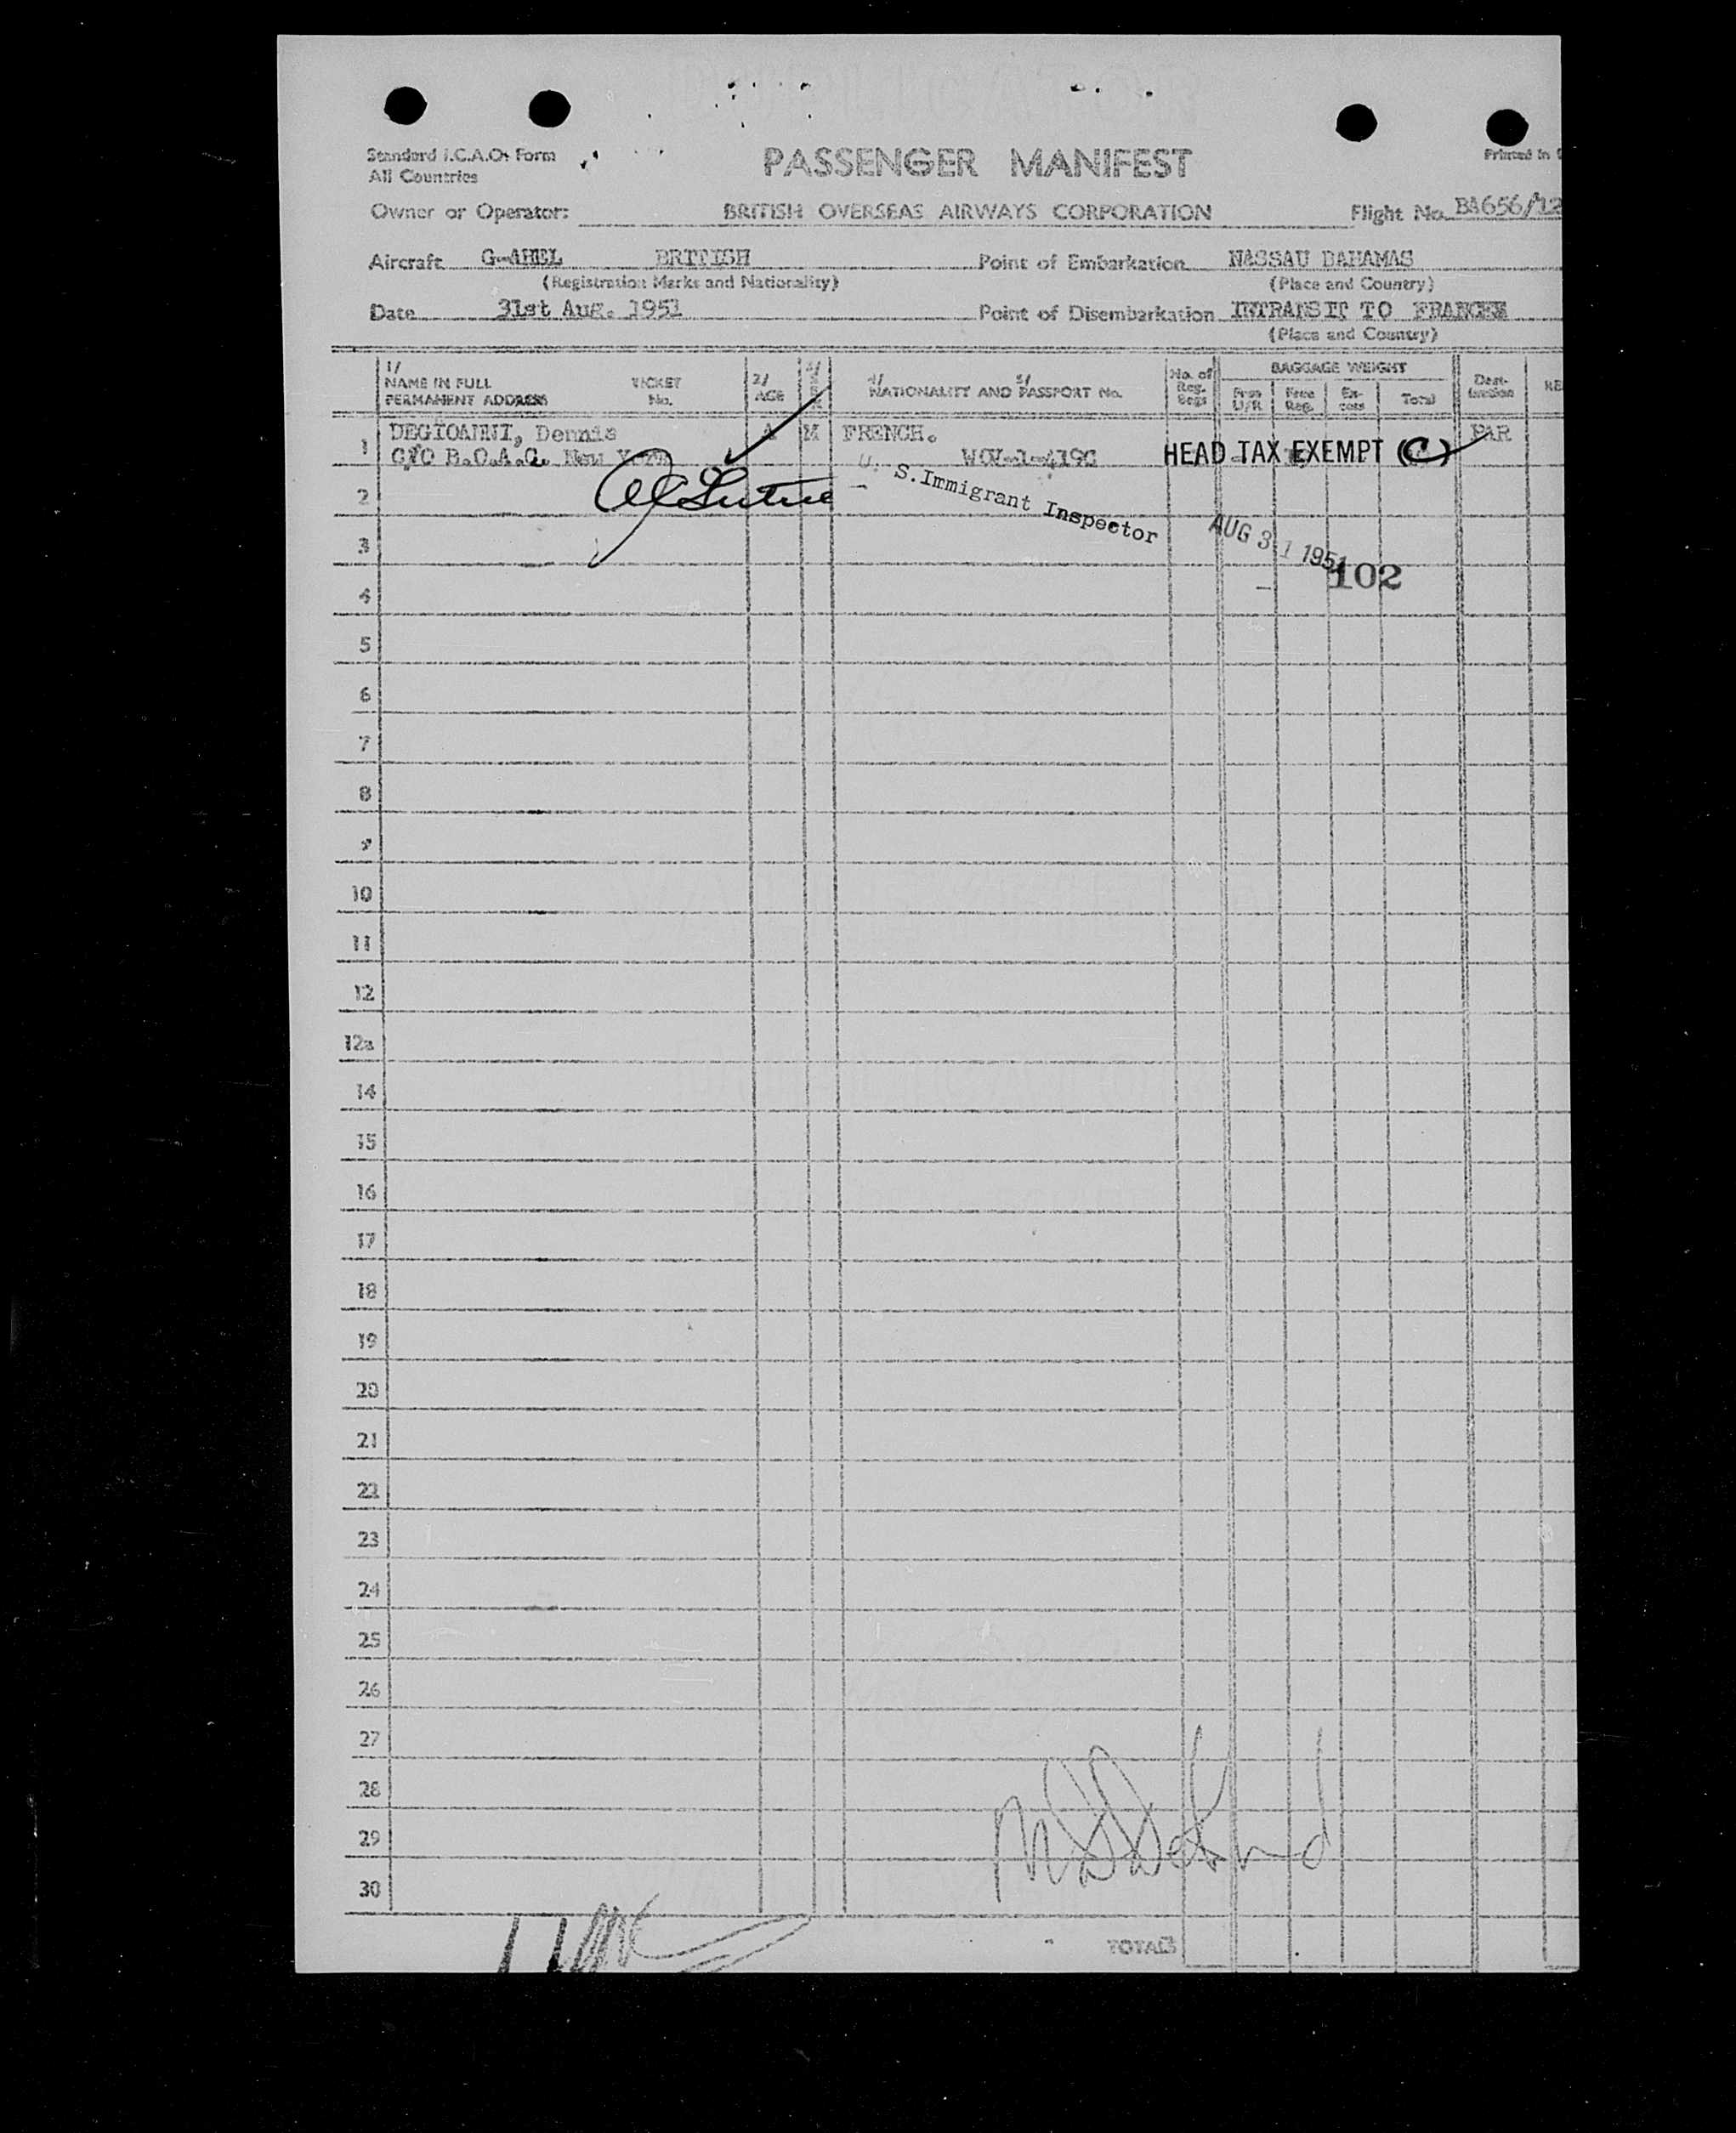 Standard I.C.A.O. Form
All Countries
PASSENGER MANIFEST
Printed in
Owner or Operator: BRITISH OVERSEAS AIRWAYS CORPORATION Flight No. BA656/12
Aircraft G-AHEL BRITISH Point of Embarkation NASSAU BAHAMAS
(Registration Marks and Nationality) (Place and Country)
Date 31st Aug. 1951 Point of Disembarkation INTRANSIT TO
(Place and Country)
1/ NAME IN FULL PERMANENT ADDRESS TICKET No. 2/ AGE 3/ SEX 4/ NATIONALITY AND 5/ PASSPORT No. No. of Reg. Bags BAGGAGE WEIGHT Free U/R Free Reg. Ex-cess Total Dest-ination RE
1 DEGIOANNI, Dennis A M FRENCH. PAR
C/O B.O.A.C. New York HEAD TAX EXEMPT (C)
U. S. Immigrant Inspector
AUG 31 1951
102
2
3
4
5
6
7
8
9
10
11
12
12a
14
15
16
17
18
19
20
21
22
23
24
25
26
27
28
29
30
TOTALS